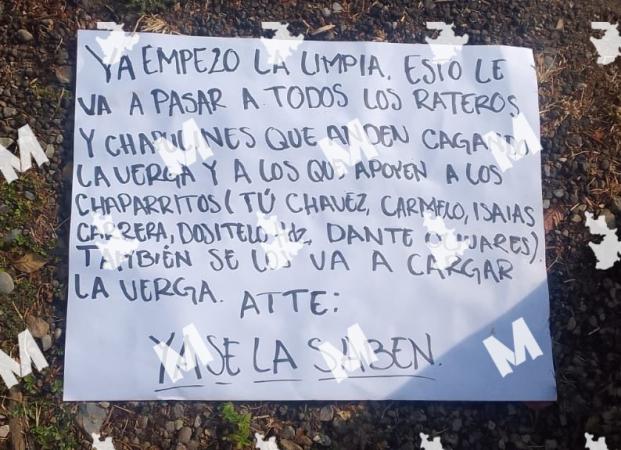 YA EMPEZO LA LIMPIA. ESTO LE
VA A PASAR A TODOS LOS RATEROS
Y CHAPULINES QUE ANDEN CAGANDO
LA VERGA Y A LOS QUE APOYEN A LOS
CHAPARRITOS (TÚ CHAVEZ, CARMELO, ISAIAS
CARRERA, DOSITELO Hdz, DANTE OLIVARES).
TAMBIÉN SE LOS VA A CARGAR
LA VERGA. ATTE:
YA SE LA SABEN.